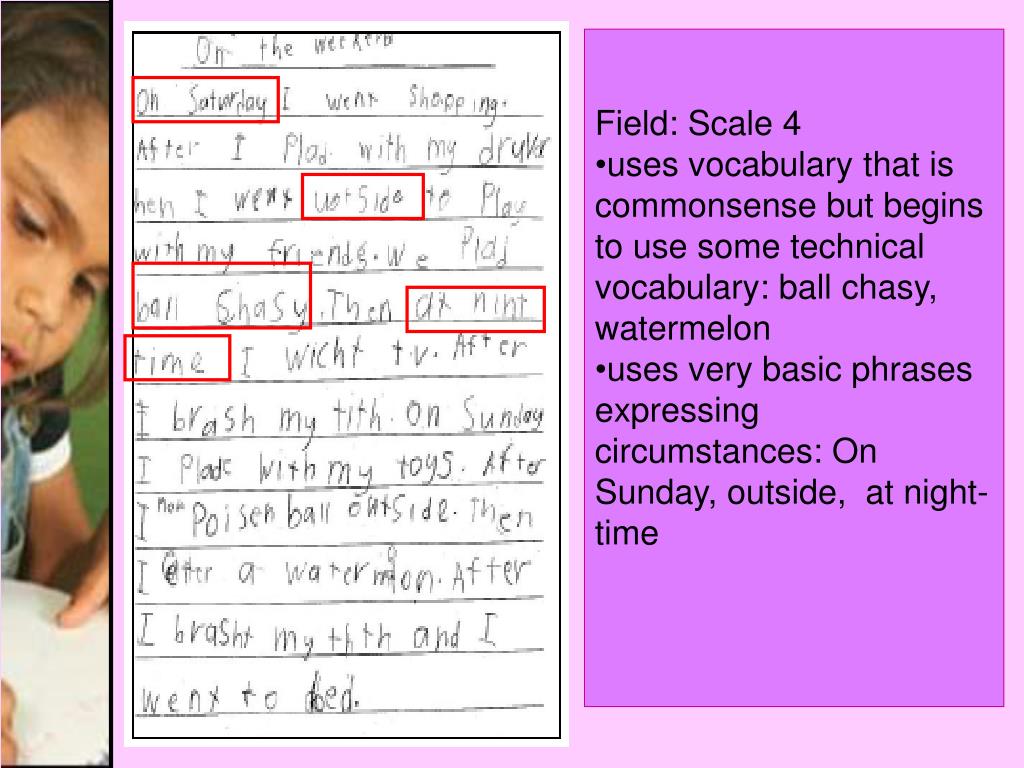 On the weekend
On Saturday I went Shopping.
After I Plad with my
hen I went uotside to Play
with my friends. We Plad
ball Chasy. Then at nint
time I wicht t.v. After
I brash my tith. On Sunday
I Plade with my toys. After
I Poisen ball outside. Then
I a watermlon. After
I brasht my thth and I
went to bed.
Field: Scale 4
•uses vocabulary that is
commonsense but begins
to use some technical
vocabulary: ball chasy,
watermelon
•uses very basic phrases
expressing
circumstances: On
Sunday, outside, at night-
time